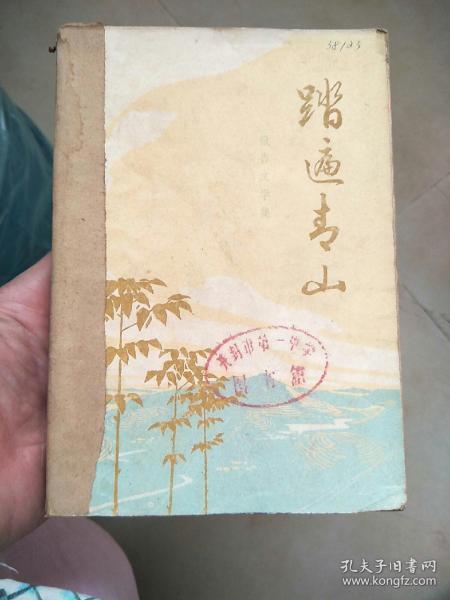 38123
踏遍青山
报告文学集
开封市第一中学
图书馆
孔夫子旧书网
www.kongfz.com